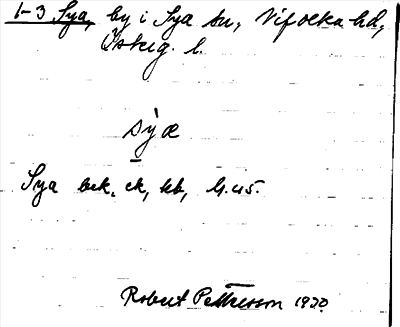 1-3 Sya, by i Sya sn, Vifolka hd,
Östg. l.
sỳæ
Sya bck. ek, kb,
Robert Pettersson 1920.